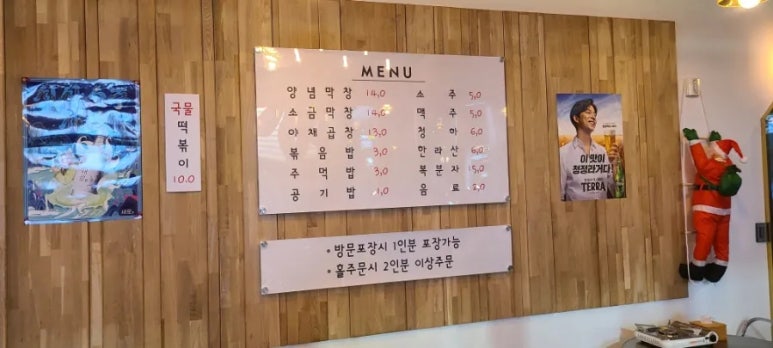 국물
떡
볶
이
10.0
MENU
양념막창 14,0
소금막창 14,0
야채곱창 13,0
볶음밥 3,0
주먹밥 3,0
공기밥 1,0
소주 5,0
맥주 5,0
청하 6,0
한라산 6,0
복분자 15,0
음료 2,0
• 방문포장시 1인분 포장가능
• 홀주문시 2인분 이상주문
이 맛이
청정라거다!
TERRA